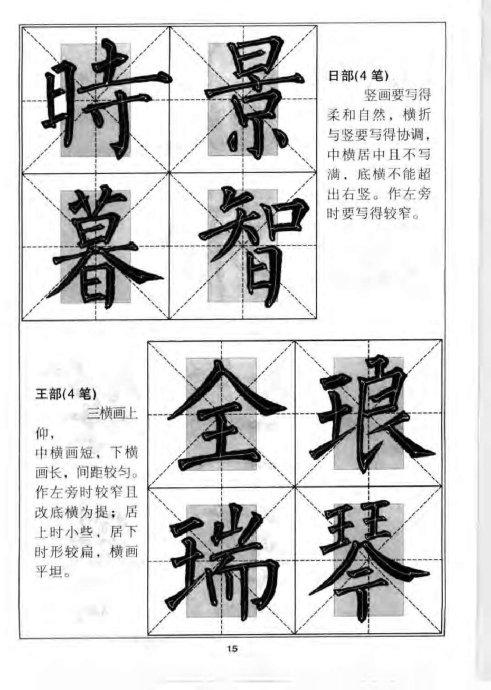 時景
日部(4笔)
竖画要写得
柔和自然，横折
与竖要写得协调，
中横居中且不写
满，底横不能超
出右竖。作左旁
时要写得较窄。
暮智
王部(4笔)
三横画上
仰，
中横画短，下横
画长，间距较匀。
作左旁时较窄且
改底横为提；居
上时小些，居下
时形较扁，横画
平坦。
全琅
瑞琴
15